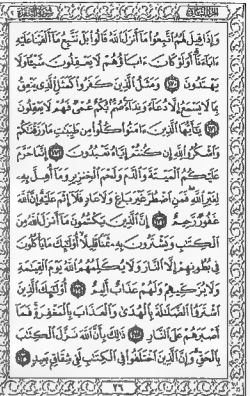 وَإِذَا قِيلَ لَهُمُ ٱتَّبِعُوا۟ مَآ أَنزَلَ ٱللَّهُ قَالُوا۟ بَلْ نَتَّبِعُ مَآ أَلْفَيْنَا عَلَيْهِ
ءَابَآءَنَآ أَوَلَوْ كَانَ ءَابَآؤُهُمْ لَا يَعْقِلُونَ شَيْـًٔا وَلَا
يَهْتَدُونَ ١٧٠ وَمَثَلُ ٱلَّذِينَ كَفَرُوا۟ كَمَثَلِ ٱلَّذِى يَنْعِقُ
بِمَا لَا يَسْمَعُ إِلَّا دُعَآءً وَنِدَآءً صُمٌّۢ بُكْمٌ عُمْىٌ فَهُمْ لَا يَعْقِلُونَ
١٧١ يَٰٓأَيُّهَا ٱلَّذِينَ ءَامَنُوا۟ كُلُوا۟ مِن طَيِّبَٰتِ مَا رَزَقْنَٰكُمْ
وَٱشْكُرُوا۟ لِلَّهِ إِن كُنتُمْ إِيَّاهُ تَعْبُدُونَ ١٧٢ إِنَّمَا حَرَّمَ
عَلَيْكُمُ ٱلْمَيْتَةَ وَٱلدَّمَ وَلَحْمَ ٱلْخِنزِيرِ وَمَآ أُهِلَّ بِهِۦ
لِغَيْرِ ٱللَّهِ فَمَنِ ٱضْطُرَّ غَيْرَ بَاغٍ وَلَا عَادٍ فَلَآ إِثْمَ عَلَيْهِ إِنَّ ٱللَّهَ
غَفُورٌ رَّحِيمٌ ١٧٣ إِنَّ ٱلَّذِينَ يَكْتُمُونَ مَآ أَنزَلَ ٱللَّهُ مِنَ
ٱلْكِتَٰبِ وَيَشْتَرُونَ بِهِۦ ثَمَنًا قَلِيلًا أُو۟لَٰٓئِكَ مَا يَأْكُلُونَ
فِى بُطُونِهِمْ إِلَّا ٱلنَّارَ وَلَا يُكَلِّمُهُمُ ٱللَّهُ يَوْمَ ٱلْقِيَٰمَةِ
وَلَا يُزَكِّيهِمْ وَلَهُمْ عَذَابٌ أَلِيمٌ ١٧٤ أُو۟لَٰٓئِكَ ٱلَّذِينَ
ٱشْتَرَوُا۟ ٱلضَّلَٰلَةَ بِٱلْهُدَىٰ وَٱلْعَذَابَ بِٱلْمَغْفِرَةِ فَمَآ
أَصْبَرَهُمْ عَلَى ٱلنَّارِ ١٧٥ ذَٰلِكَ بِأَنَّ ٱللَّهَ نَزَّلَ ٱلْكِتَٰبَ
بِٱلْحَقِّ وَإِنَّ ٱلَّذِينَ ٱخْتَلَفُوا۟ فِى ٱلْكِتَٰبِ لَفِى شِقَاقٍۭ بَعِيدٍ ١٧٦
٢٦